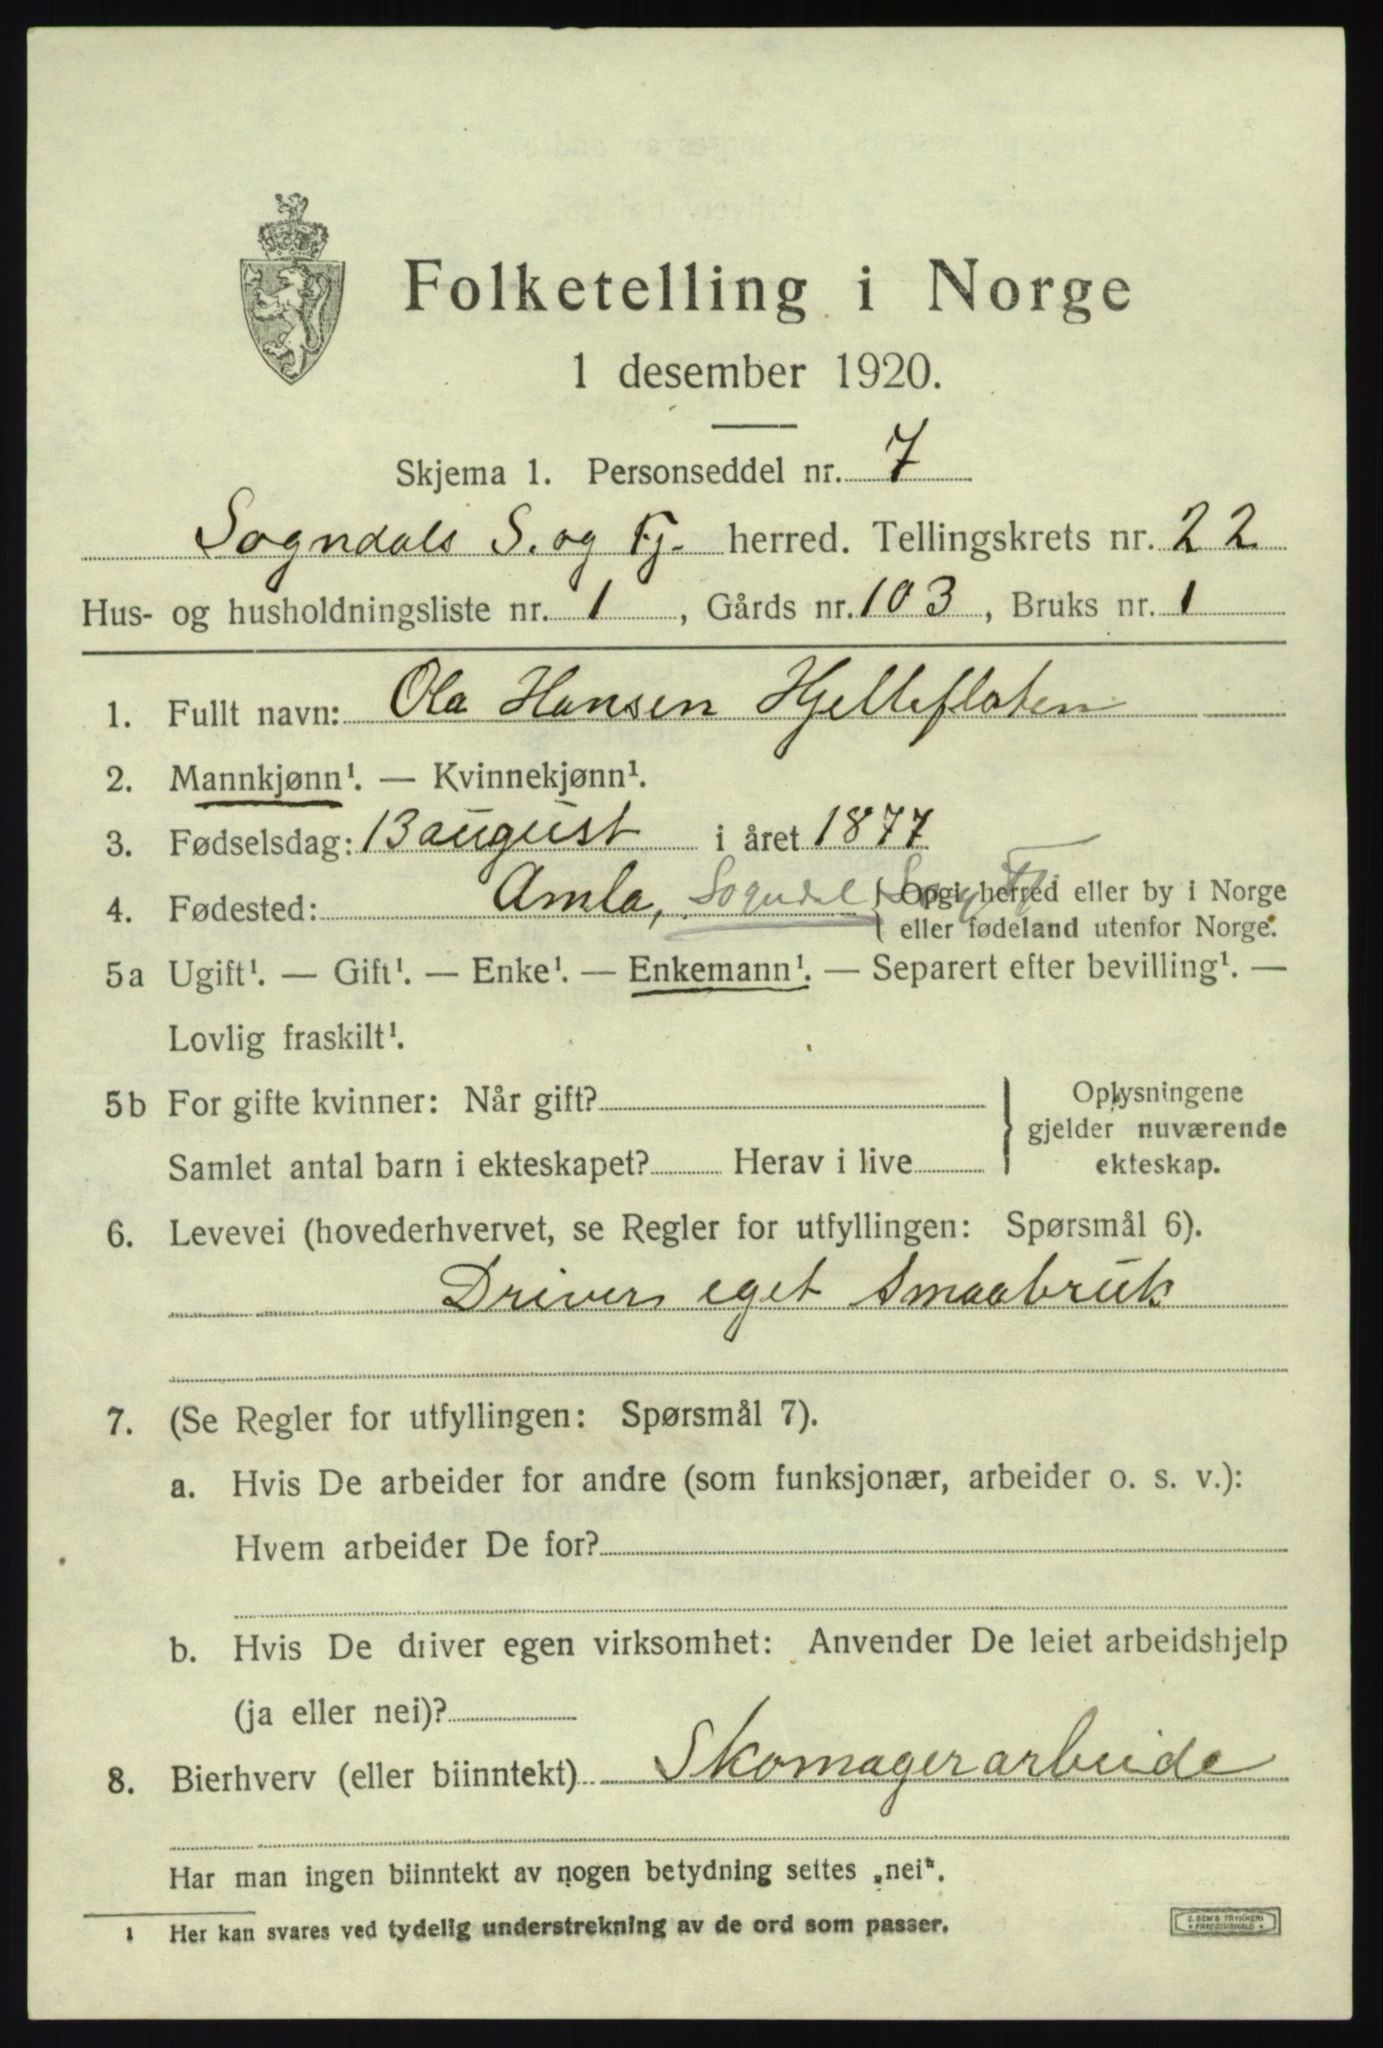 Folketelling i Norge
1 desember 1920.
Skjema 1. Personseddel nr. 7
Sogndals S. og Fj. herred. Tellingskrets nr. 22
Hus- og husholdningsliste nr. 1, Gårds nr. 103, Bruks nr. 1
1. Fullt navn: Ola Hansen Hjelleflaten
2. Mannkjønn¹. — Kvinnekjønn¹.
3. Fødselsdag: 13 august i året 1877
4. Fødested: Amla, Sogndal (Opgi herred eller by i Norge
eller fødeland utenfor Norge.
5a Ugift¹. — Gift¹. — Enke¹. — Enkemann¹. — Separert efter bevilling¹. —
Lovlig fraskilt¹.
5b For gifte kvinner: Når gift? Oplysningene
gjelder nuværende
Samlet antal barn i ekteskapet? Herav i live ekteskap.
6. Levevei (hovederhvervet, se Regler for utfyllingen: Spørsmål 6).
Driver eget Smaabruk
7. (Se Regler for utfyllingen: Spørsmål 7).
a. Hvis De arbeider for andre (som funksjonær, arbeider o. s. v.):
Hvem arbeider De for?
b. Hvis De driver egen virksomhet: Anvender De leiet arbeidshjelp
(ja eller nei)?
8. Bierhverv (eller biinntekt) Skomagerarbeide
Har man ingen biinntekt av nogen betydning settes „nei“.
1 Her kan svares ved tydelig understrekning av de ord som passer.